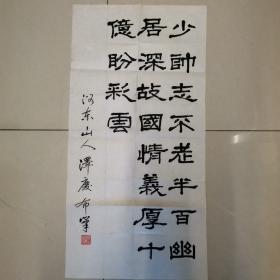 少帥志不老半百幽
居深故國情義厚十
億盼彩雲
河东山人澤慶布筆